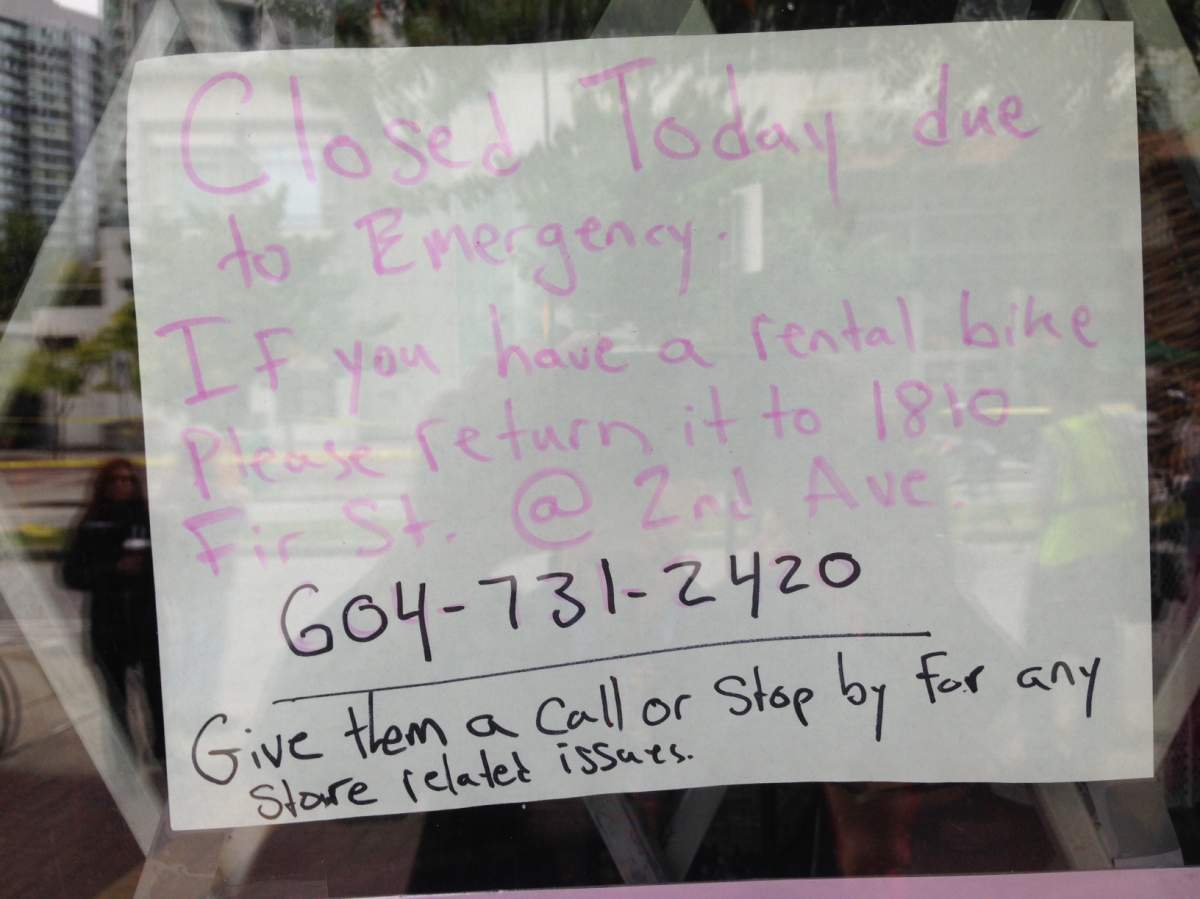 Closed Today due
to Emergency.
If you have a rental bike
Please return it to 1810
Fir St. @ 2nd Ave.
604-731-2420
Give them a Call or Stop by for any
Store related issues.